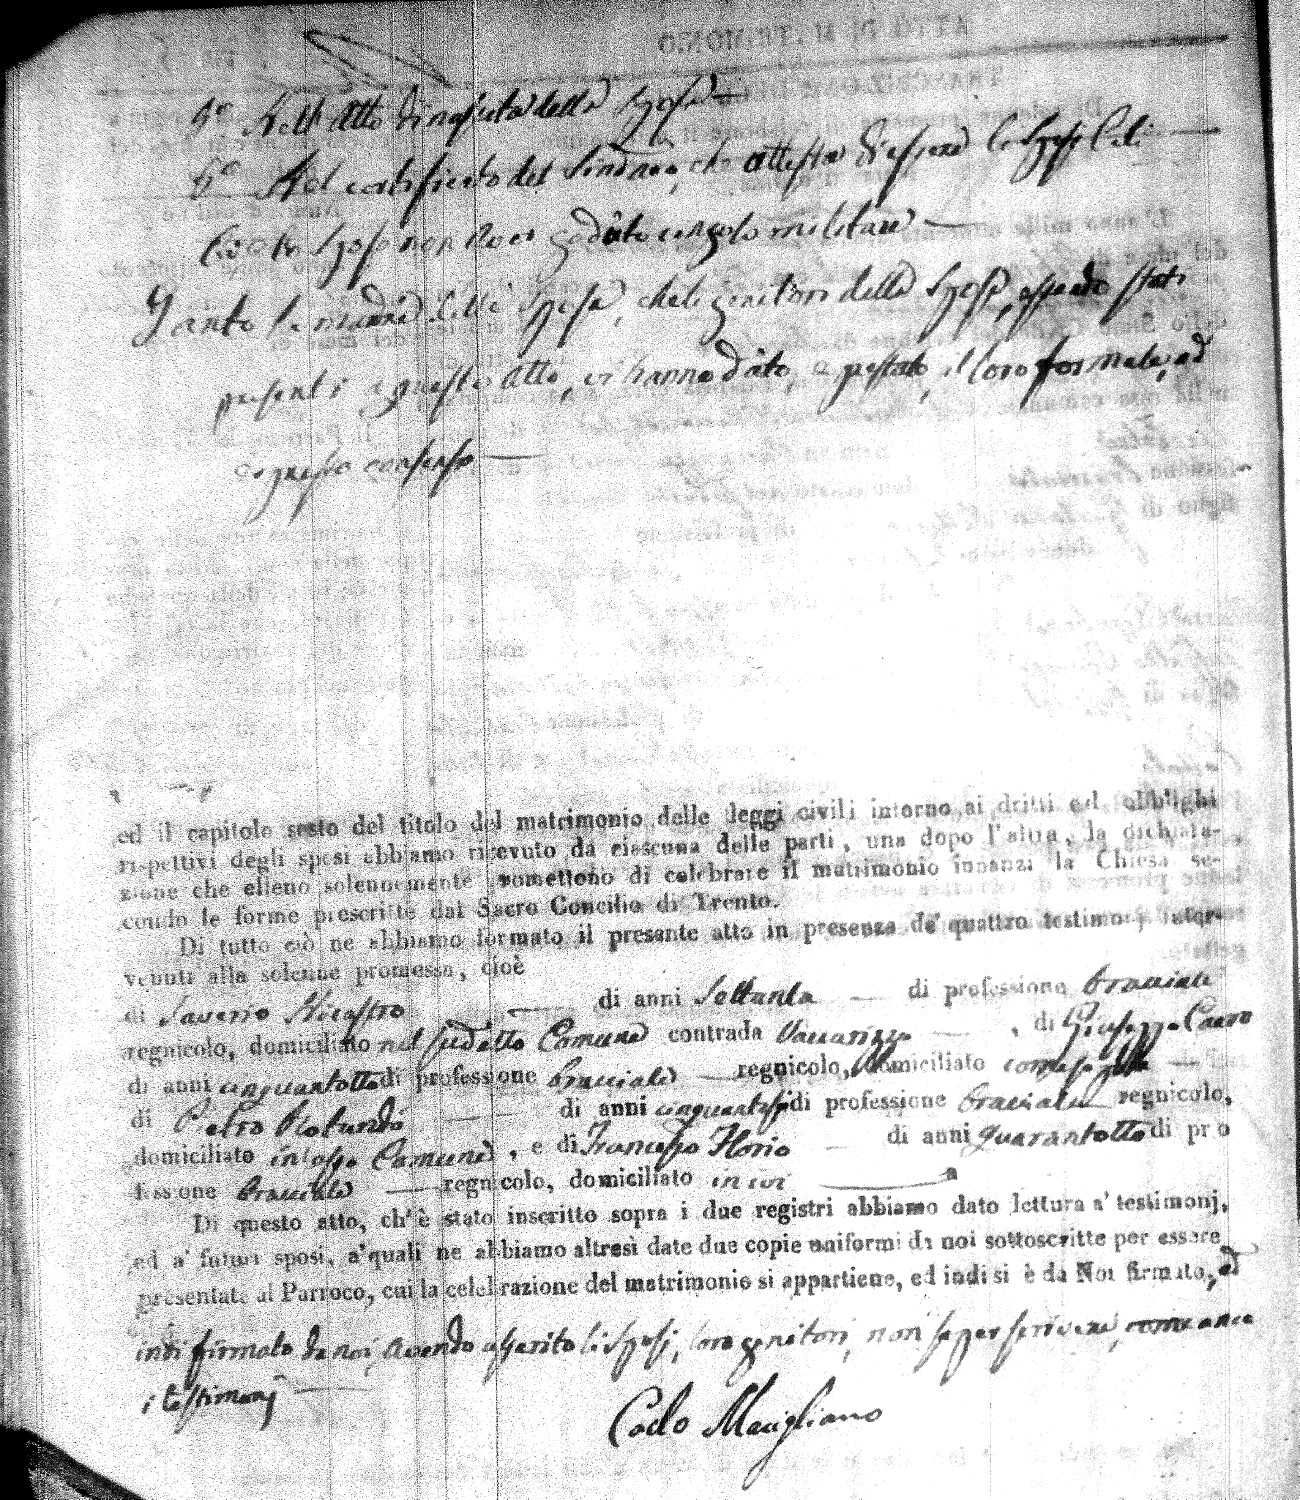 5º Dell'Atto di nascita della Sposa —
6º Del certificato del Sindaco, che attesta di essere li Sposi Celi-
bi, e lo Sposo non aver goduto congedo militare —
Tanto la madre dello Sposo, che li genitori della Sposa, essendo stati
presenti a questo atto, vi hanno dato, e prestato il loro formale, ed
espresso consenso —
ed il capitolo sesto del titolo del matrimonio delle leggi civili intorno ai dritti ed obblighi
rispettivi degli sposi abbiamo ricevuto da ciascuna delle parti, una dopo l'altra, la dichiara-
zione che elleno solennemente promettono di celebrare il matrimonio innanzi la Chiesa se-
condo le forme prescritte dal Sacro Concilio di Trento.
Di tutto ciò ne abbiamo formato il presente atto in presenza de' quattro testimonj inter-
venuti alla solenne promessa, cioè
di Saverio Nicastro — di anni Settanta — di professione bracciale
regnicolo, domiciliato nel sudetto Comune contrada Vaccarizzo — , di Giuseppe Caero
di anni cinquantotto di professione bracciale — regnicolo, domiciliato come sopra —
di Pietro Rotundo — di anni cinquantasei di professione bracciale regnicolo,
domiciliato in esso Comune, e di Francesco Florio — di anni quarantotto di pro
fessione bracciale — regnicolo, domiciliato in ivi
Di questo atto, ch'è stato inscritto sopra i due registri abbiamo dato lettura a' testimonj,
ed a' futuri sposi, a' quali ne abbiamo altresì date due copie uniformi da noi sottoscritte per essere
presentate al Parroco, cui la celebrazione del matrimonio si appartiene, ed indi si è da Noi firmato, ed
indi firmato da noi, avendo asserito li Sposi, loro genitori, non saper scrivere, come anche
i testimonj —
Carlo Macigliano